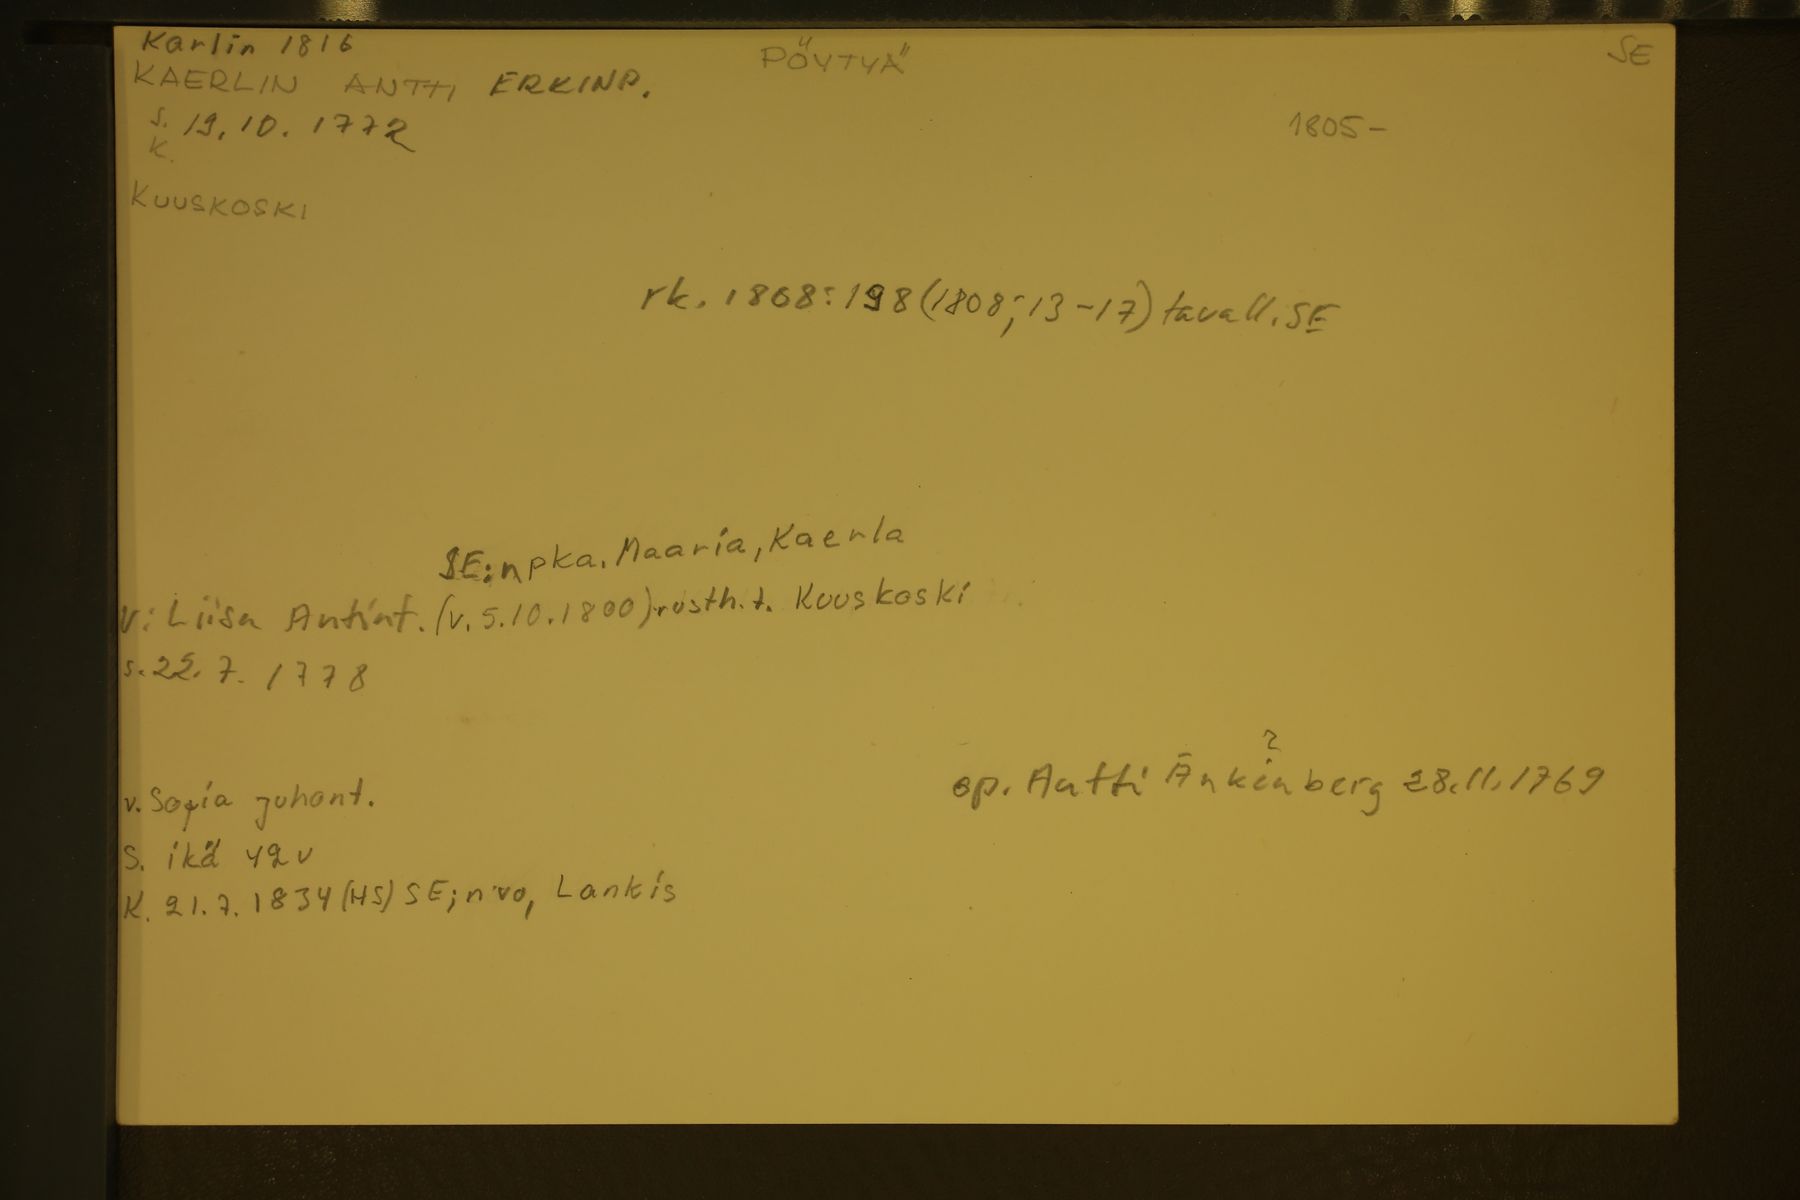 Karlin 1816
KAERLIN ANTTI ERKINP.
PÖYTYÄ
SE
s. 19.10. 1772
K.
1805-
KUUSKOSKI
rk. 1808:198 (1808; 13-17) tavall. SE
SE; npka. Maaria, Kaerla
V: Liisa Antint. (v. 5.10.1800) rusth.t. Kuuskoski
s. 22. 7. 1778
?
ep. Antti Änkinberg 28.11.1769
v. Sofia Juhont.
S. ikä 42 v
K. 21.7.1834 (HS) SE; nvo, Lankis